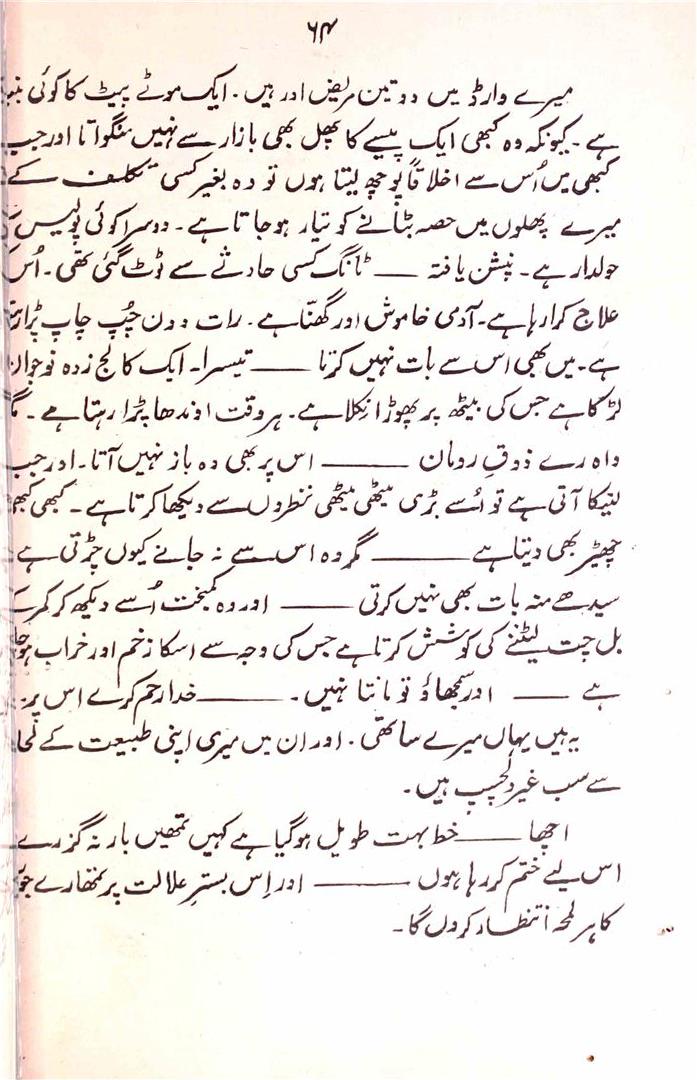 ۶۴
میرے وارڈ میں دو تین مریض اور ہیں۔ ایک موٹے پیٹ کا کوئی
ہے۔ کیونکہ وہ کبھی ایک پیسے کا پھل بھی بازار سے نہیں منگواتا اور جب
کبھی میں اُس سے اخلاقاً پوچھ لیتا ہوں تو وہ بغیر کسی تکلف کے
میرے پھلوں میں حصہ بٹانے کو تیار ہو جاتا ہے۔ دوسرا کوئی پولیس
حولدار ہے۔ پنشن یافتہ ـــ ٹانگ کسی حادثے سے ٹوٹ گئی تھی۔ اُس
علاج کرا رہا ہے۔ آدمی خاموش اور گھنّا ہے۔ رات دن چُپ چاپ پڑا رہتا
ہے۔ میں بھی اس سے بات نہیں کرتا ـــ تیسرا۔ ایک کالج زدہ نوجوان
لڑکا ہے جس کی پیٹھ پر پھوڑا نِکلا ہے۔ ہر وقت اوندھا پڑا رہتا ہے۔ مگر
واہ رے ذوقِ رومان ـــ اس پر بھی وہ باز نہیں آتا۔ اور جب
لنیکا آتی ہے تو اُسے بڑی میٹھی میٹھی نظروں سے دیکھا کرتا ہے۔ کبھی کبھی
چھیڑ بھی دیتا ہے ـــ مگر وہ اس سے نہ جانے کیوں چڑتی ہے
سیدھے منہ بات بھی نہیں کرتی ـــ اور وہ کمبخت اُسے دیکھ کر کمر کے
بل چت لیٹنے کی کوشش کرتا ہے جس کی وجہ سے اسکا زخم اور خراب ہو جاتا
ہے ـــ اور سمجھاؤ تو مانتا نہیں۔ ـــ خدا رحم کرے اس پر۔
یہ ہیں یہاں میرے ساتھی۔ اور ان میں میری اپنی طبیعت کے لحاظ
سے سب غیر دلچسپ ہیں۔
اچھا ـــ خط بہت طویل ہو گیا ہے کہیں تمھیں بار نہ گزرے
اس لیے ختم کر رہا ہوں ـــ اور اِس بسترِ علالت پر تمھارے
کا ہر لمحہ انتظار کروں گا۔